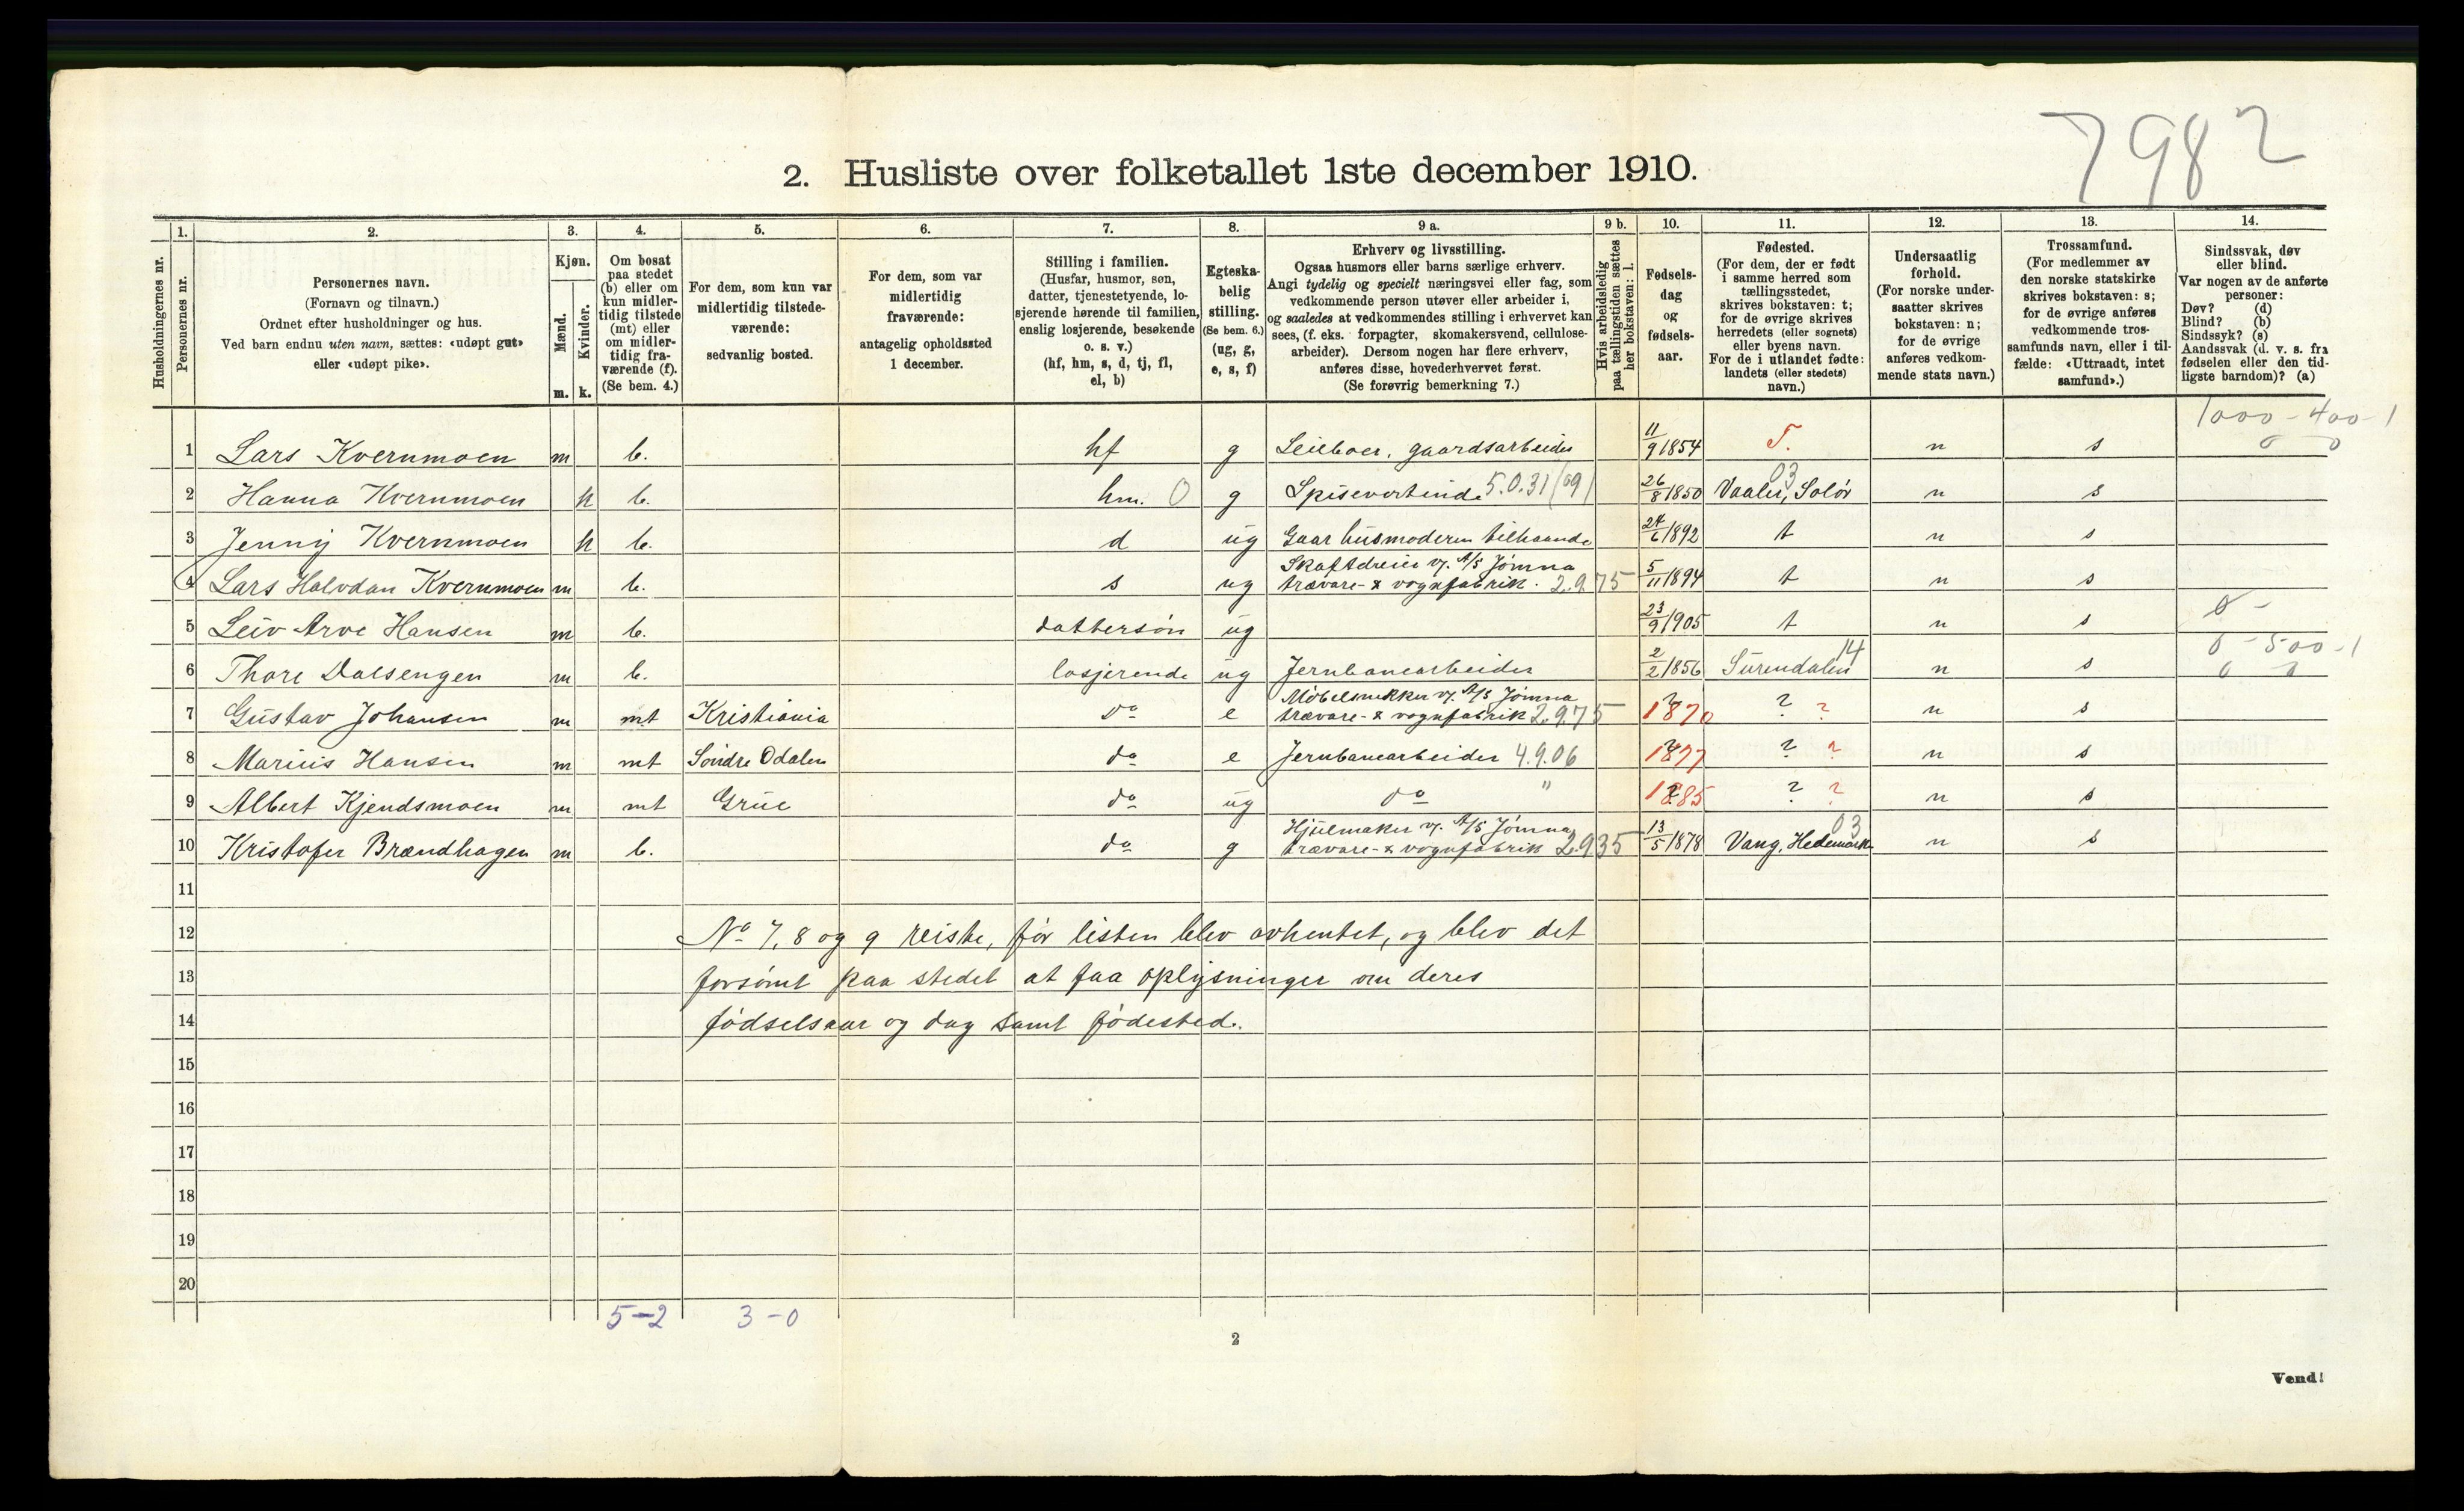 7982
2. Husliste over folketallet 1ste december 1910.
Husholdningernes nr.
1. Personernes nr.
2. Personernes navn.
(Fornavn og tilnavn.)
Ordnet efter husholdninger og hus.
Ved barn endnu uten navn, sættes: «udøpt gut»
eller «udøpt pike».
3. Kjøn.
Mænd. m.
Kvinder. k.
4. Om bosat
paa stedet
(b) eller om
kun midler-
tidig tilstede
(mt) eller
om midler-
tidig fra-
værende (f).
(Se bem. 4.)
5. For dem, som kun var
midlertidig tilstede-
værende:
sedvanlig bosted.
6. For dem, som var
midlertidig
fraværende:
antagelig opholdssted
1 december.
7. Stilling i familien.
(Husfar, husmor, søn,
datter, tjenestetyende, lo-
sjerende hørende til familien,
enslig losjerende, besøkende
o. s. v.)
(hf, hm, s, d, tj, fl,
el, b)
8. Egteska-
belig
stilling.
(Se bem. 6.)
(ug, g,
e, s, f)
9 a. Erhverv og livsstilling.
Ogsaa husmors eller barns særlige erhverv.
Angi tydelig og specielt næringsvei eller fag, som
vedkommende person utøver eller arbeider i,
og saaledes at vedkommendes stilling i erhvervet kan
sees, (f. eks. forpagter, skomakersvend, cellulose-
arbeider). Dersom nogen har flere erhverv,
anføres disse, hovederhvervet først.
(Se forøvrig bemerkning 7.)
9 b. Hvis arbeidsledig
paa tællingstiden sættes
her bokstaven: l.
10. Fødsels-
dag
og
fødsels-
aar.
11. Fødested.
(For dem, der er født
i samme herred som
tællingsstedet,
skrives bokstaven: t;
for de øvrige skrives
herredets (eller sognets)
eller byens navn.
For de i utlandet fødte:
landets (eller stedets)
navn.)
12. Undersaatlig
forhold.
(For norske under-
saatter skrives
bokstaven: n;
for de øvrige
anføres vedkom-
mende stats navn.)
13. Trossamfund.
(For medlemmer av
den norske statskirke
skrives bokstaven: s;
for de øvrige anføres
vedkommende tros-
samfunds navn, eller i til-
fælde: «Uttraadt, intet
samfund».)
14. Sindssvak, døv
eller blind.
Var nogen av de anførte
personer:
Døv? (d)
Blind? (b)
Sindssyk? (s)
Aandssvak (d. v. s. fra
fødselen eller den tid-
ligste barndom)? (a)
1000 - 400 - 1
1 Lars Kvernmoen m b. hf g Leieboer, gaardsarbeider 11/9 1854 T. n s 0 0
2 Hanna Kvernmoen k b. hm. 0 g Spisevertinde 5.0.31 (09) 26/8 1850 Vaaler, Solør 03 n s
3 Jenny Kvernmoen k b. d ug Gaar husmoderen tilhaande 24/6 1892 t n s
4 Lars Halvdan Kvernmoen m b. s ug Skaftdreier v. A/S Jømna
trævare- & vognfabrik. 2.9.75 5/11 1894 t n s
5 Leiv Arve Hansen m b. dattersøn ug 23/9 1905 t n s 0 -
0 - 500 - 1
6 Thore Dalsengen m b. losjerende ug Jernbanearbeider 2/2 1856 Surendalen 14 n s 0 0
7 Gustav Johansen m mt Kristiania do e Møbelsnekker v. A/S Jømna
trævare- & vognfabrik 2.9.75 ? 1870 ? ? n s
8 Marius Hansen m mt Søndre Odalen do e Jernbanearbeider 4.9.06 ? 1877 ? ? n s
9 Albert Kjendsmoen m mt Grue do ug do " ? 1885 ? ? n s
10 Kristofer Brændhagen m b. do g Hjulmaker v. A/S Jømna
trævare- & vognfabrik 2.935 13/5 1878 Vang, Hedemark 03 n s
11
12 No 7, 8 og 9 reiste, før listen blev avhentet, og blev det
13 forsømt paa stedet at faa oplysninger om deres
14 fødselsaar og dag samt fødested.
15
16
17
18
19
20
5-2 3-0
2
Vend!